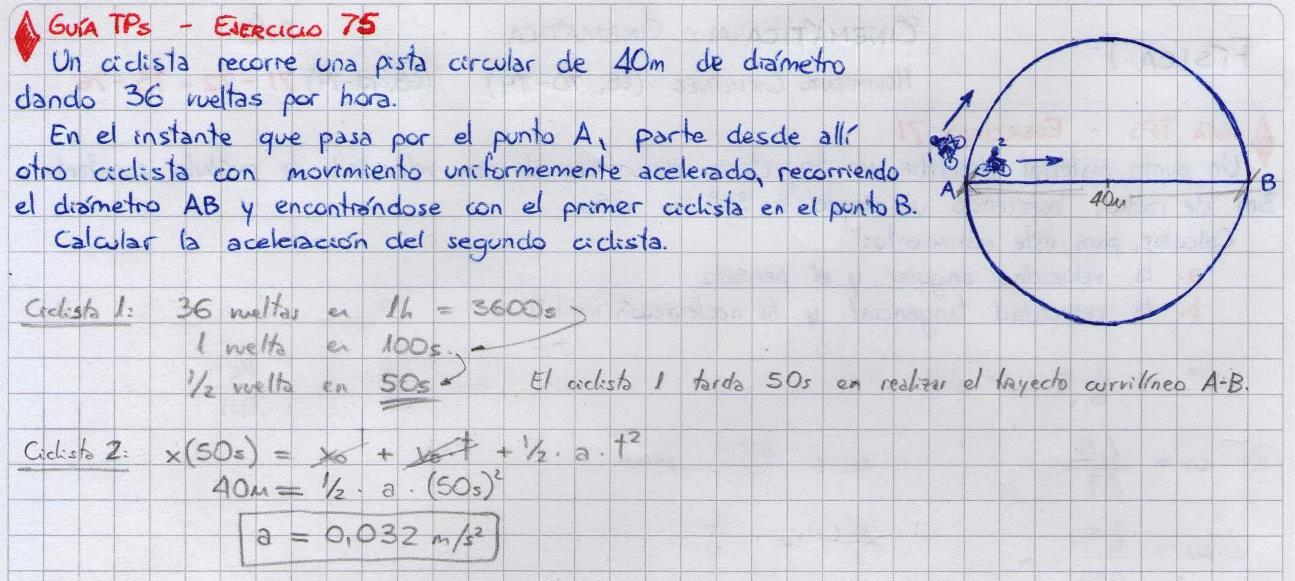 GUÍA TPs - EJERCICIO 75
Un ciclista recorre una pista circular de 40m de diámetro
dando 36 vueltas por hora.
En el instante que pasa por el punto A, parte desde allí
otro ciclista con movimiento uniformemente acelerado, recorriendo
el diámetro AB y encontrándose con el primer ciclista en el punto B.
Calcular la aceleración del segundo ciclista.
1
2
A
B
40m
Ciclista 1: 36 vueltas en 1h = 3600s
1 vuelta en 100s.
1/2 vuelta en 50s
El ciclista 1 tarda 50s en realizar el trayecto curvilíneo A-B.
Ciclista 2: x(50s) = x₀ + v₀·t + 1/2 · a · t²
40m = 1/2 · a · (50s)²
a = 0,032 m/s²